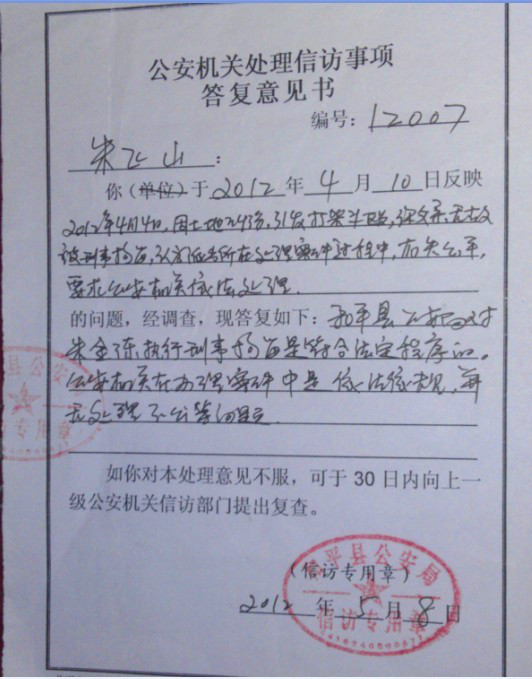 公安机关处理信访事项
答复意见书
编号：12007
朱飞山：
你（单位）于2012年4月10日反映
2012年4月4日，因土地纠纷，引发打架斗殴，
被刑事拘留，认为派出所在处理案件过程中，有失公平，
要求公安机关依法处理.
的问题，经调查，现答复如下：和平县公安局对
朱金陈执行刑事拘留是符合法定程序的。
公安机关在办理案件中是依法依规，并
无处理不公等问题
如你对本处理意见不服，可于30日内向上一
级公安机关信访部门提出复查。
和平县公安局
（信访专用章）
信访专用章
2012年5月8日
县公安
专用章